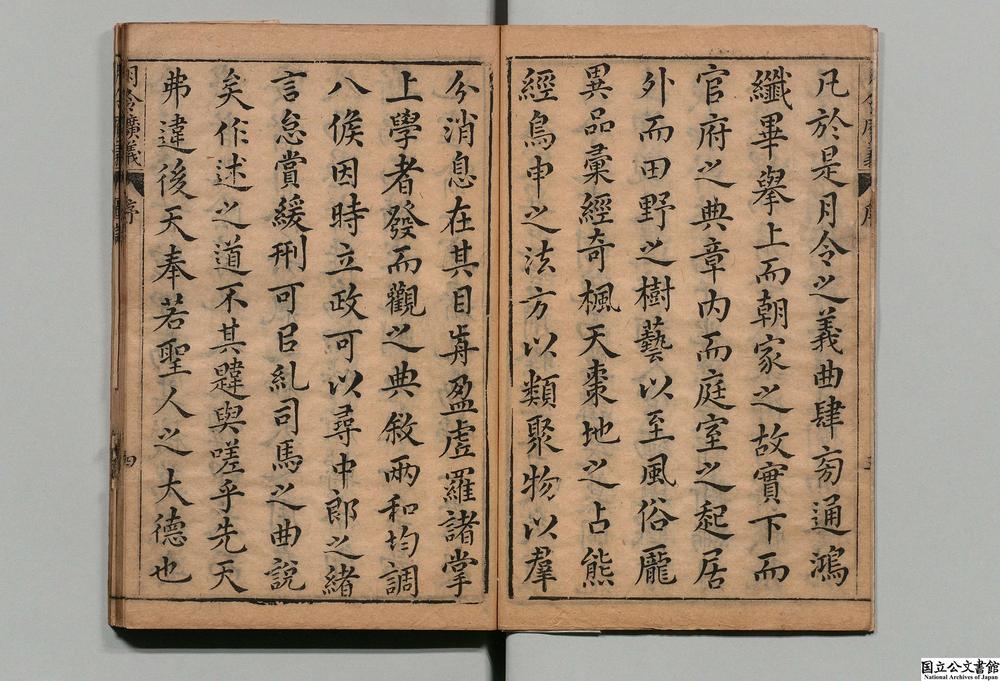 凡於是月令之義曲肆旁通鴻
纖畢舉上而朝家之故實下而
官府之典章内而庭室之起居
外而田野之樹藝以至風俗厖
異品彙經奇楓天棗地之占熊
經鳥申之法方以類聚物以羣
分消息在其目歬盈虗羅諸掌
上學者發而觀之典敘兩和均調
八候因時立政可以尋中郎之緒
言怠賞緩刑可㠯糺司馬之曲說
矣作述之道不其韙與嗟乎先天
弗違後天奉若聖人之大德也
月令廣義
序
四
国立公文書館
National Archives of Japan